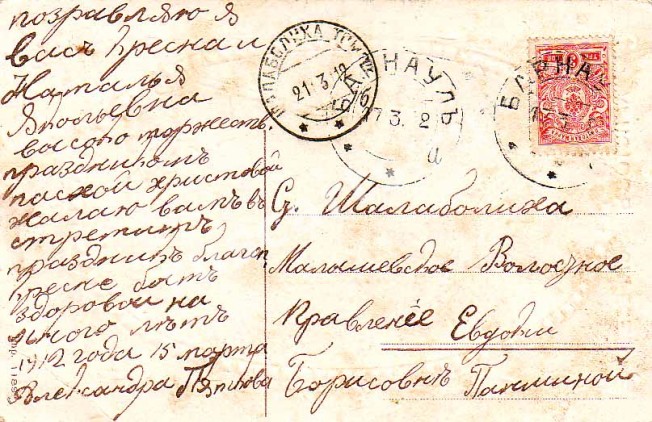 позравляю я
васъ Кресная
Наталья
высого торжеств.
праздникомъ
пасхой христовой
жалаю вамъ въ
стретить
праздникъ
здоровой на
много лѣтъ
1912 года 15 марта
Александра
ШАЛАБОЛИХА
21.3.12
БАРНАУЛЪ
17.3.12
а
БАРНА
С. Шалаболиха
Малышевское Волосное
Правленіе Евдоки
Борисовнѣ Паниной